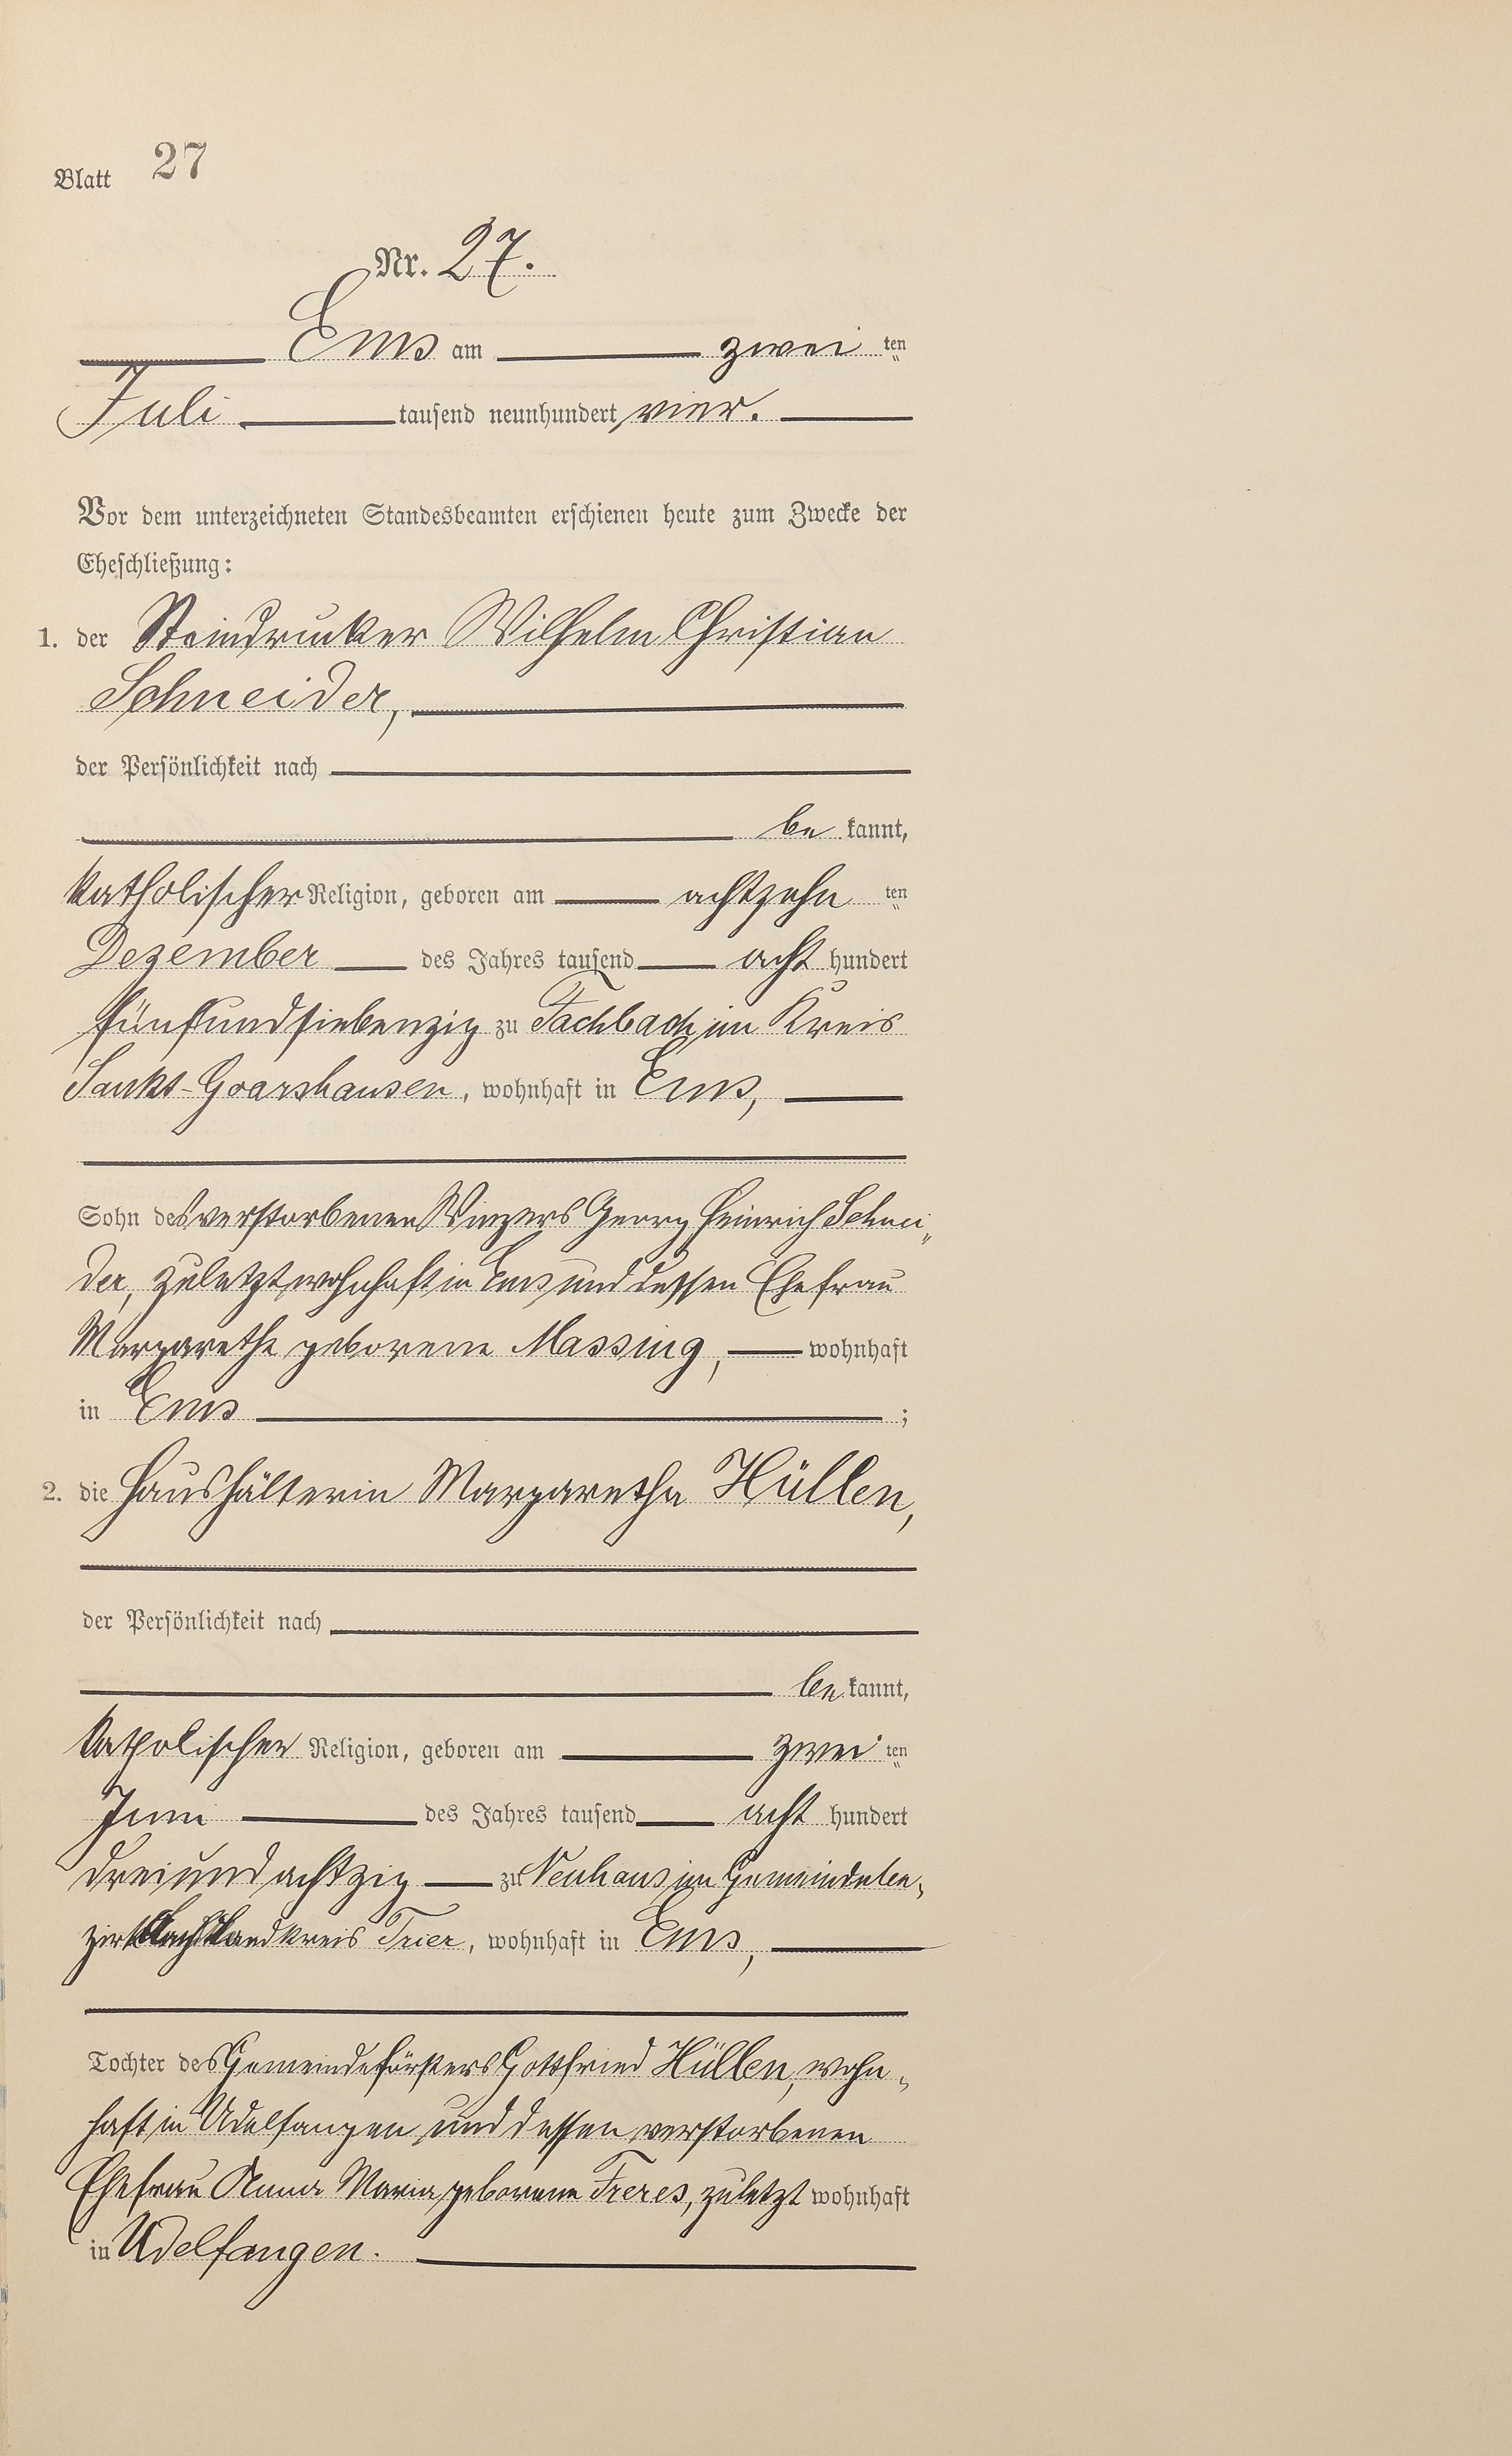 Blatt 27
Nr. 27.
Ems am zwei ten
Juli tausend neunhundert vier.
Vor dem unterzeichneten Standesbeamten erschienen heute zum Zwecke der
Eheschließung:
1. der Steindrucker Wilhelm Christian
Schneider,
der Persönlichkeit nach
be kannt,
katholischer Religion, geboren am achtzehn ten
Dezember des Jahres tausend acht hundert
fünfundsiebenzig zu Fachbach im Kreis
Sankt-Goarshausen, wohnhaft in Ems,
Sohn des verstorbenen Winzers Georg Heinrich Schnei„
der, zuletzt wohnhaft in Ems und dessen Ehefrau
Margarethe geborene Massing, wohnhaft
in Ems ;
2. die Haushälterin Margaretha Hüllen,
der Persönlichkeit nach
be kannt,
katholischer Religion, geboren am zwei ten
Juni des Jahres tausend acht hundert
dreiundachtzig zu Neuhaus im Gemeindebe„
zirk Landkreis Trier, wohnhaft in Ems,
Tochter des Gemeindeförsters Gottfried Hüllen, wohn„
haft in Udelfangen und dessen verstorbenen
Ehefrau Anna Maria geborene Freres, zuletzt wohnhaft
in Udelfangen.